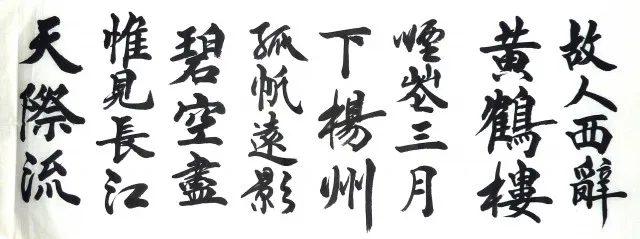 故人西辭
黄鶴樓
煙花三月
下楊州
孤帆遠影
碧空盡
惟見長江
天際流